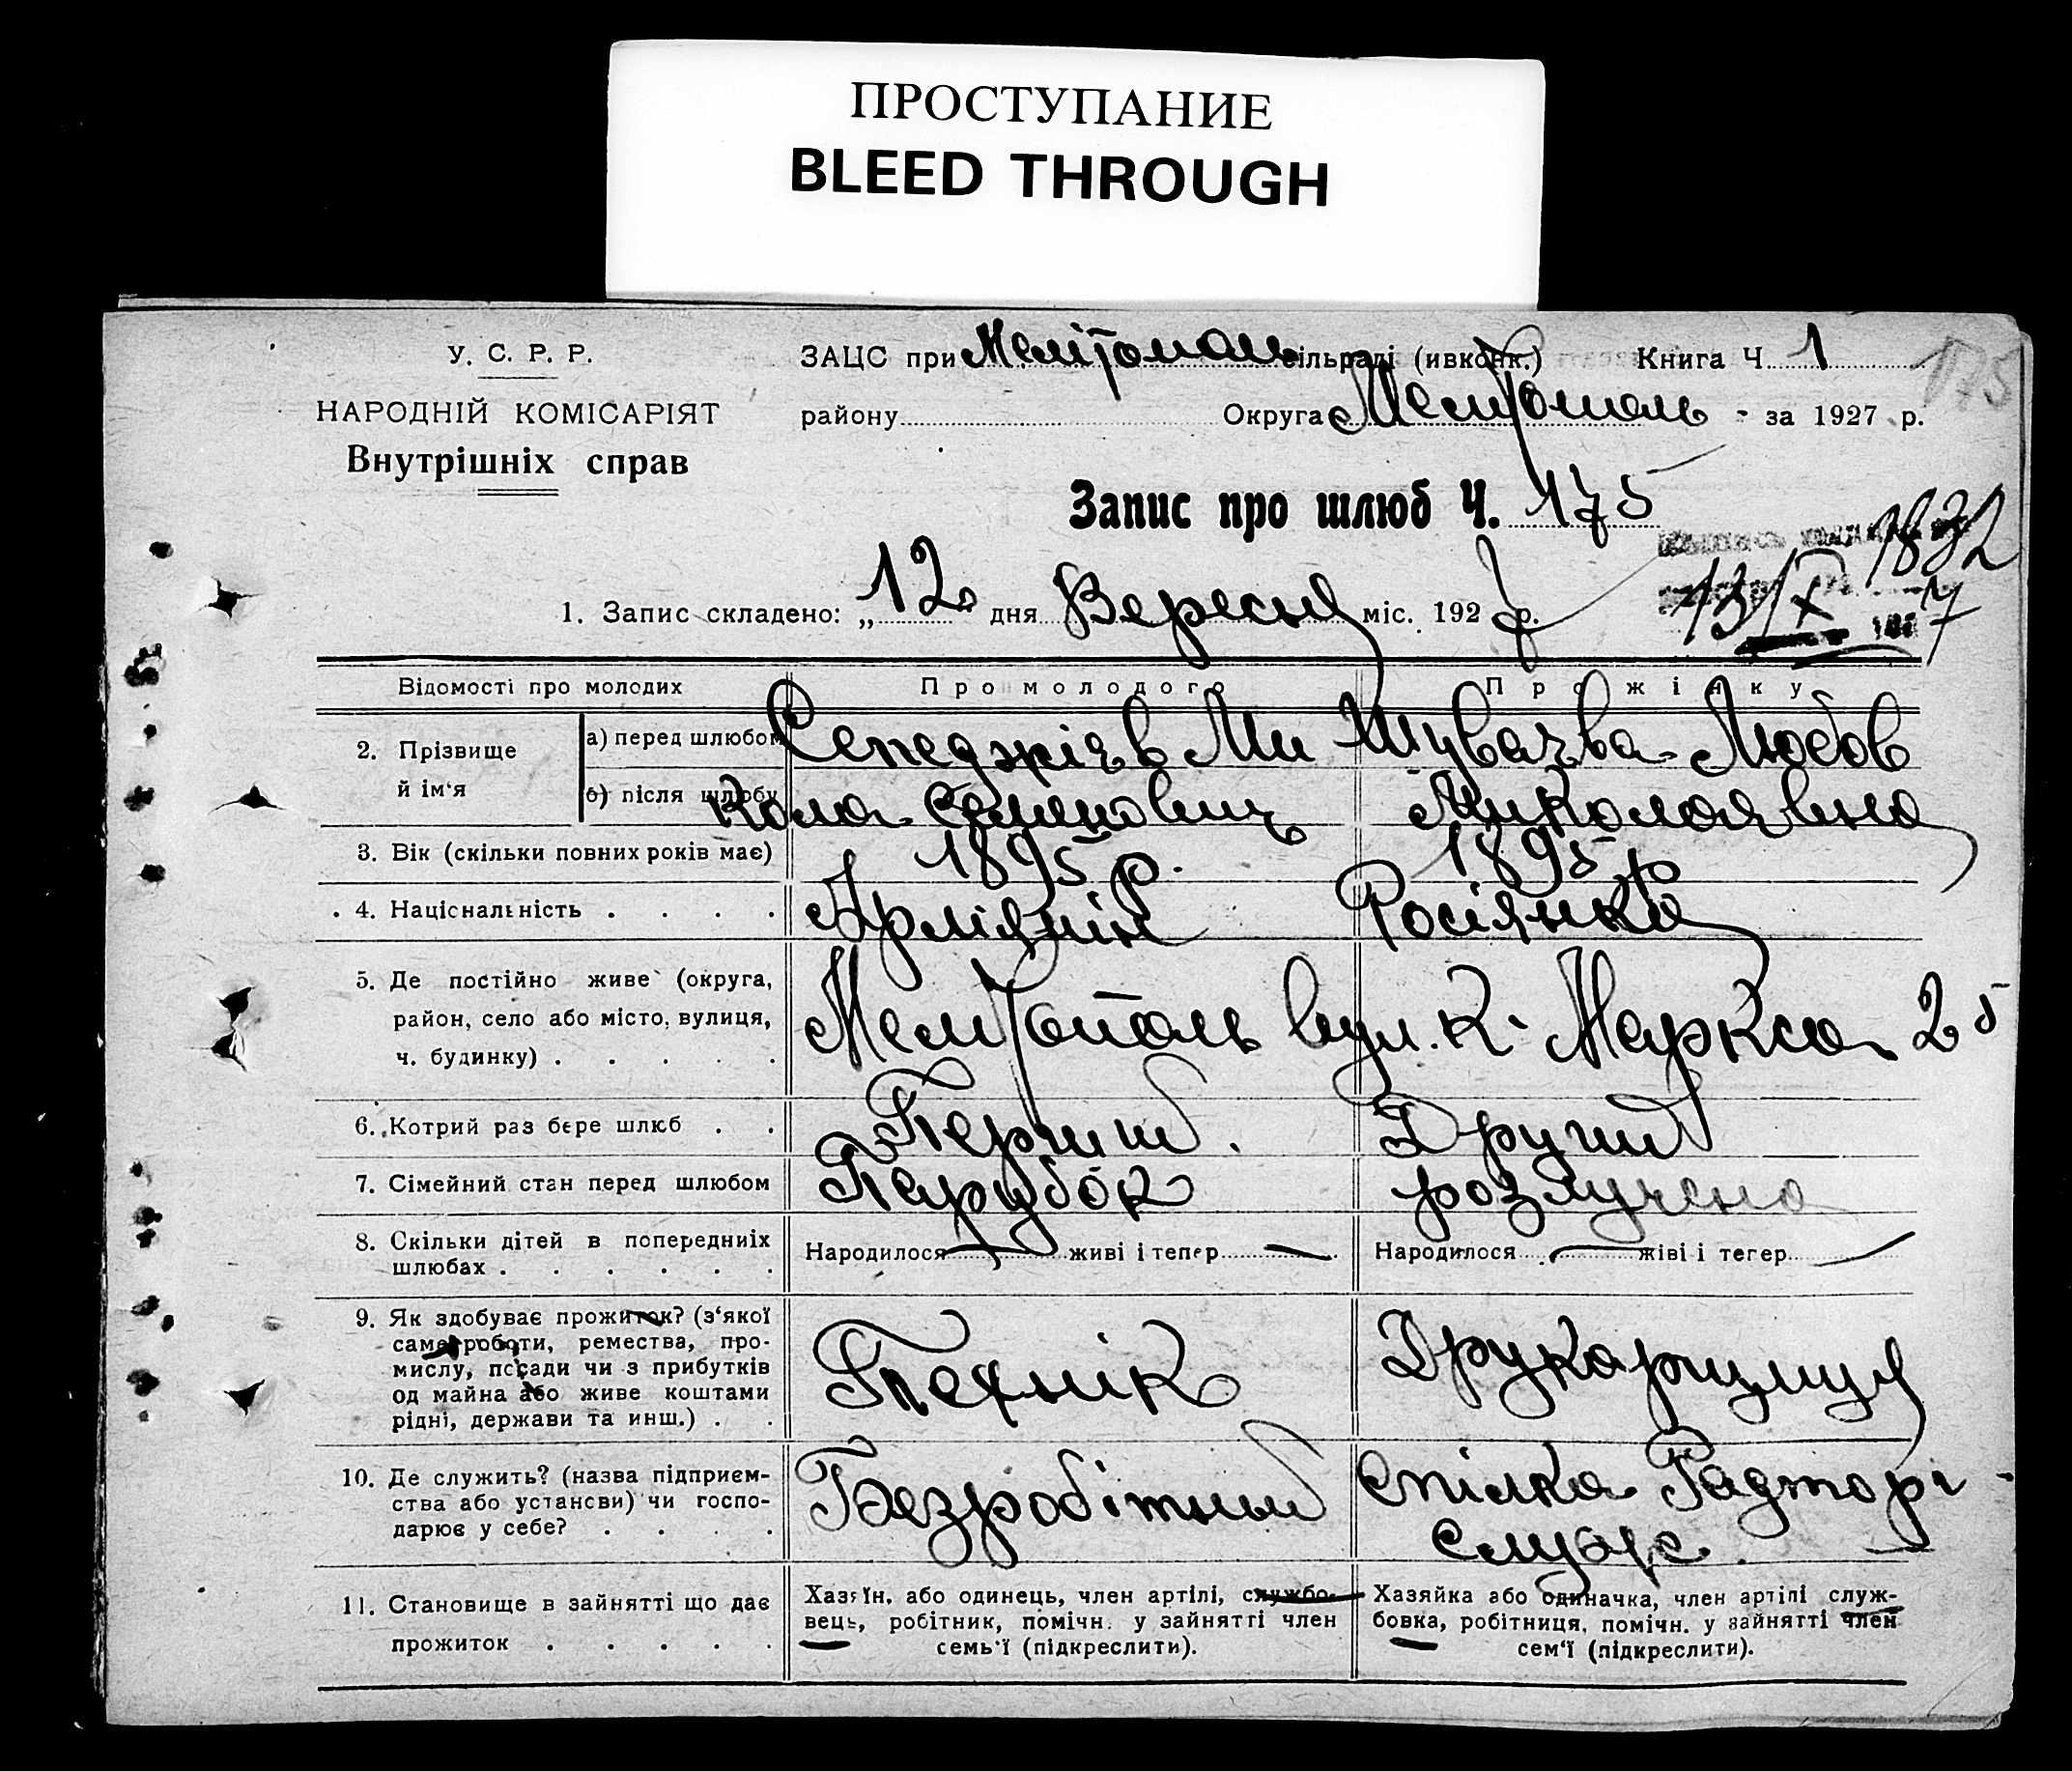 ПРОСТУПАНИЕ
BLEED THROUGH
У. С. Р. Р.
НАРОДНІЙ КОМІСАРІЯТ
Внутрішніх справ
ЗАЦС при Мелітополь сільраді (ивконк.) Книга Ч. 1
175
району Округа Мелітополь за 1927 р.
Запис про шлюб Ч. 175
1832
13/X 7
1. Запис складено: „12" дня Вересня міс. 1927 р.
Відомості про молодих Про молодого Про жінку
2. Прізвище й ім'я
а) перед шлюбом Сепеджіяв Ми Шуваєва Любов
б) після шлюбу кола Семенович Миколаявна
3. Вік (скільки повних років має) 1895 р. 1895 р
4. Національність . . . . Армiянін Росіянка
5. Де постійно живе (округа,
район, село або місто, вулиця, Мелітополь вул. К. Маркса 25
ч. будинку) . . . . .
6. Котрий раз бере шлюб . . Перший. Другий
7. Сімейний стан перед шлюбом Парубок розлучена
8. Скільки дітей в попередніх Народилося — живі і тепер — Народилося — жіві і тегер —
шлюбах . . . . . .
9. Як здобуває прожиток? (з'якої
саме роботи, ремества, про-
мислу, посади чи з прибутків Технік Друкарщиця
од майна або живе коштами
рідні, держави та инш.) . .
10. Де служить? (назва підприєм- Безробітний Спілка Радторг
ства або устанεви) чи госпо- служ.
дарює у себе? . . . .
11. Становище в зайнятті що дає
прожиток . . . . .
Хазяїн, або одинець, член артілі, службо-
вець, робітник, помічн. у зайнятті член
семь'ї (підкреслити).
Хазяйка або одиначка, член артілі служ-
бовка, робітниця, помічн. у зайнятті член
сем'ї (підкреслити).